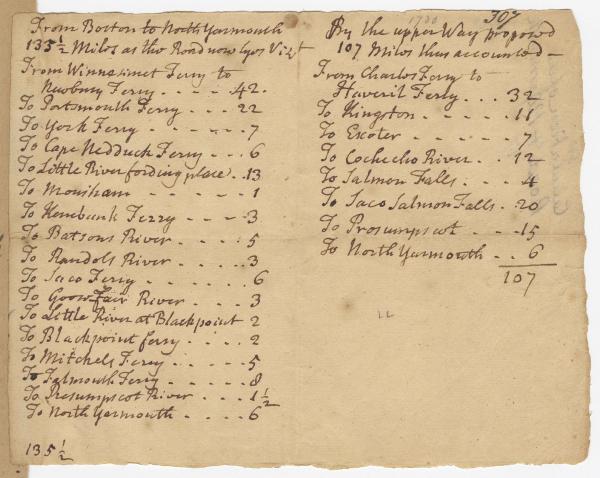 From Boston to North Yarmouth
135 1/2 Miles as the Road now goes Vizt
From Winnesimet Ferry to
Newbury Ferry - - - - - 42.
To Portsmouth Ferry - - - 22
To York Ferry - - - - - - 7
To Cape Nedduck Ferry - - . 6
To Little River fording place . 13
To Moniham - - - - - 1
To Kennbunk Ferry - - - - 3
To Batsons River - - - . 5
To Randols River - - - . 3
To Saco Ferry - - - - . 6
To Goose Fair River - - - . 3
To Little River at Blackpoint 2
To Blackpoint ferry - - - . 2
To Mitchels Ferry - - - - - 5
To Falmouth Ferry - - - - . 8
To Presumpscot River - - - 1 1/2
To North Yarmouth - - - - . 6
135 1/2
307
1700
By the upper Way proposed
107 Miles thus accounted -
From Charles Ferry to -
Haveril Ferry . . . 32
To Kingston - - - - . 11
To Exeter - - - - . 7
To Cochecho River . . 12
To Salmon Falls . - - . 4
To Saco Salmon Falls . 20
To Prosumpscot - - - 15
To North Yarmouth - . . 6
107